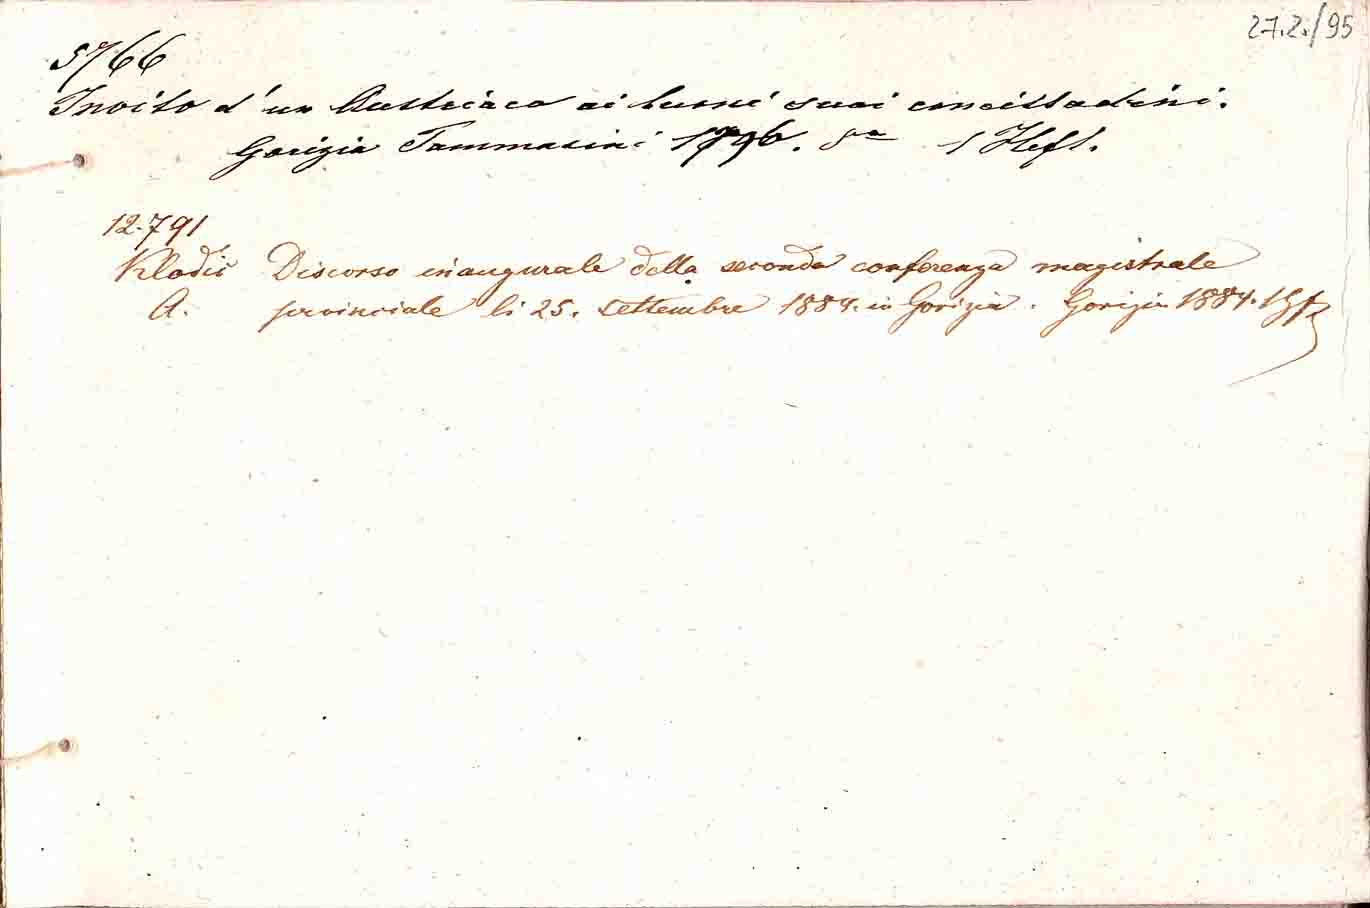 27.2./95
5766
Invito d'un Austriaco ai buoni suoi concittadini.
Gorizia Tommasini 1796. 8º 1 Heft.
12.791
Klodič Discorso inaugurale della seconda conferenza magistrale
A. provinciale li 25. settembre 1884. in Gorizia. Gorizia 1884. 1 Hft